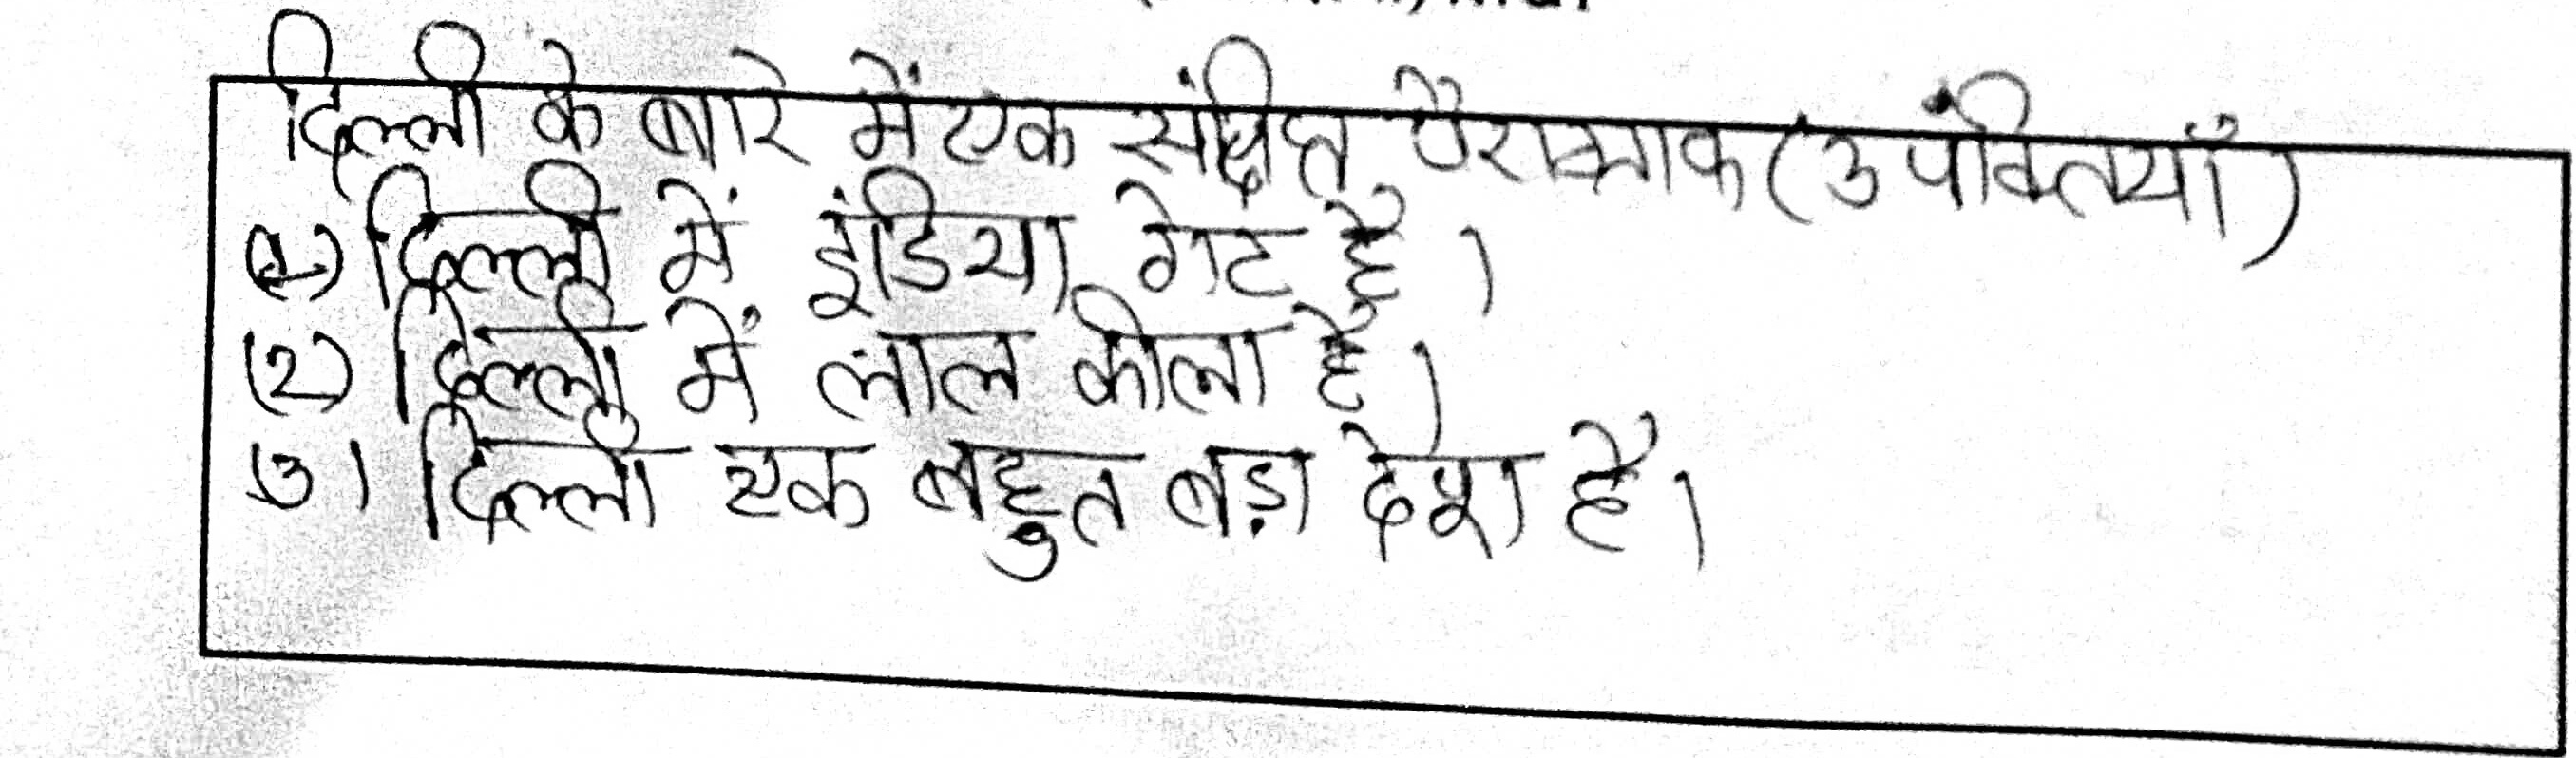 दिल्ली के बारे में एक संक्षिप्त पैराग्राफ (3 पंक्तियाँ)
(1) दिल्ली में इंडिया गेट है।
(2) दिल्ली में लाल कीला है।
(3) दिल्ली एक बहुत बड़ा देश है।